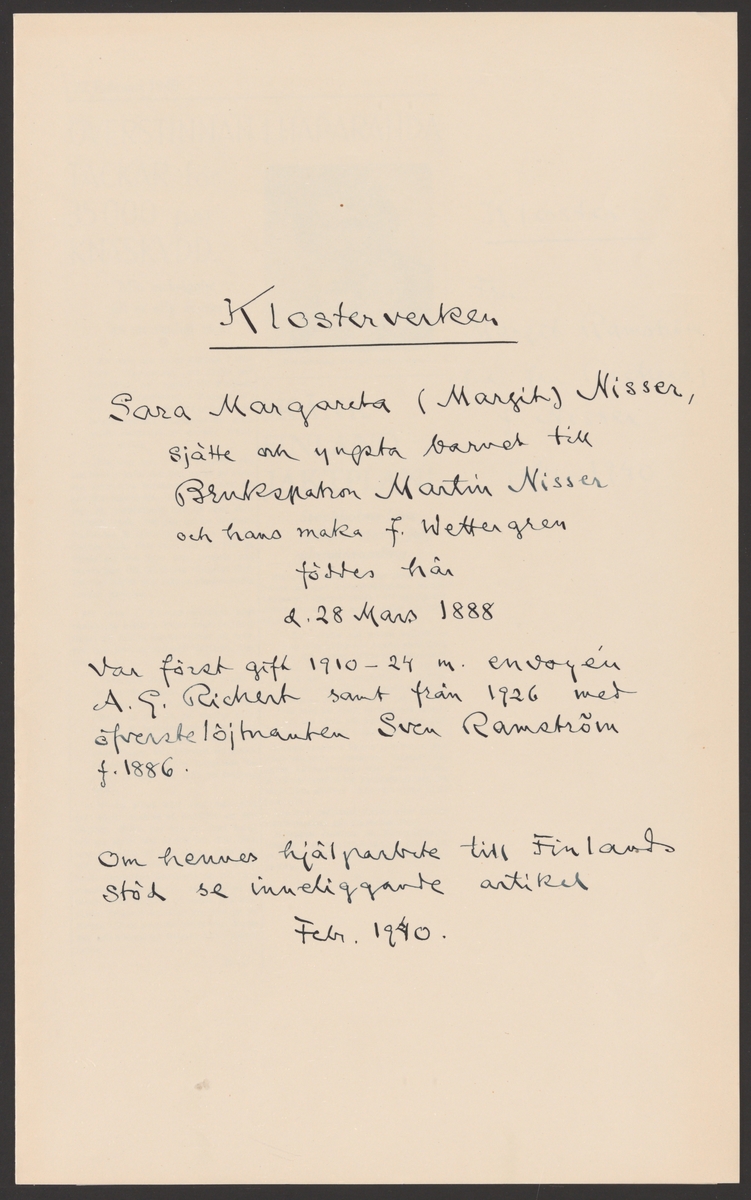 Klosterverken
Sara Margareta (Margit) Nisser,
sjätte och yngsta barnet till
Brukspatron Martin Nisser
och hans maka f. Wettergren
föddes här
d. 28 Mars 1888
Var först gift 1910-24 m. envoyén
A. G. Richert samt från 1926 med
öfverstelöjtnanten Sven Ramström
f. 1886.
Om hennes hjälparbete till Finlands
stöd se inneliggande artikel
Febr. 1940.